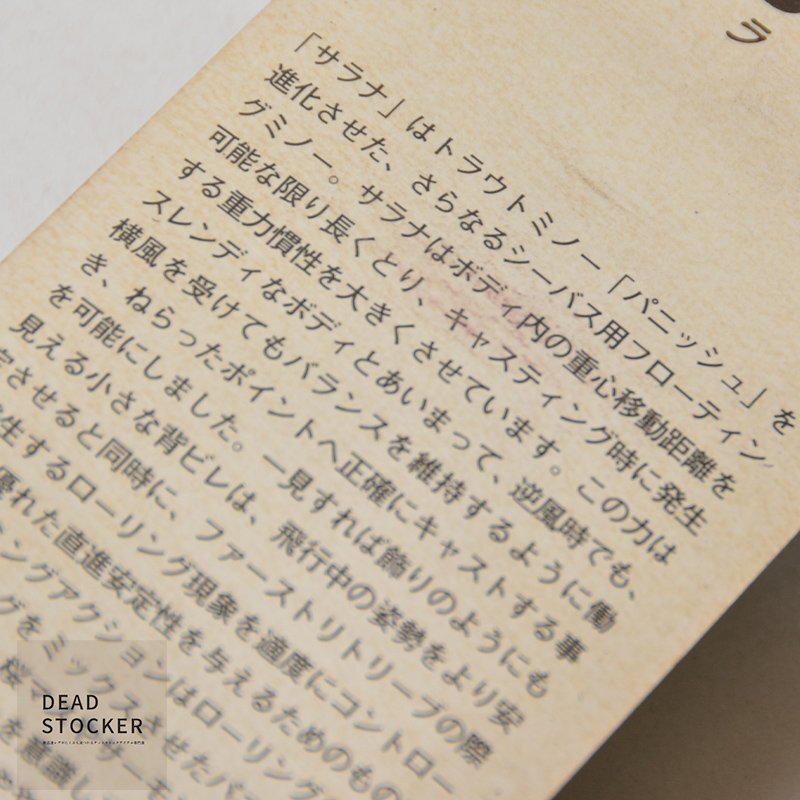 ラ
「サラナ」はトラウトミノー「パニッシュ」を
進化させた、さらなるシーバス用フローティン
グミノー。サラナはボディ内の重心移動距離を
可能な限り長くとり、キャスティング時に発生
する重力慣性を大きくさせています。この力は
スレンディなボディとあいまって、逆風時でも、
横風を受けてもバランスを維持するように働
き、ねらったポイントへ正確にキャストする事
を可能にしました。一見すれば飾りのようにも
見える小さな背ビレは、飛行中の姿勢をより安
定させると同時に、ファーストリトリーブの際
生するローリング現象を適度にコントロー
優れた直進安定性を与えるためのもの
ングアクションはローリング
グをミックスさせたバ
桜マ サーモ
を意識し
DEAD
STOCKER